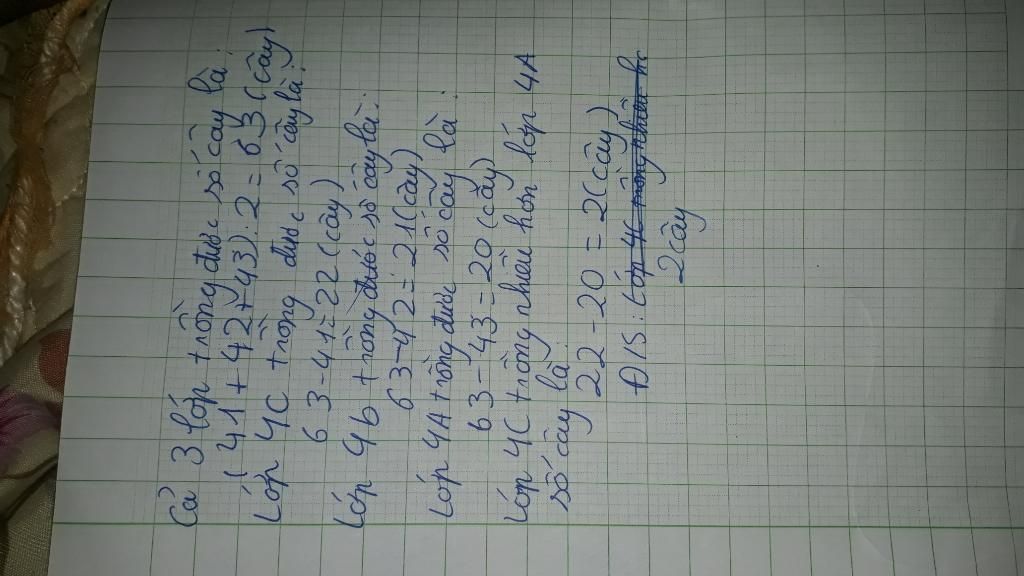 Cả 3 lớp trồng được số cây là:
(41 + 42 + 43) : 2 = 63 (cây)
Lớp 4C trồng được số cây là:
63 - 41 = 22 (cây)
Lớp 4b trồng được số cây là:
63 - 42 = 21 (cây)
Lớp 4A trồng được số cây là:
63 - 43 = 20 (cây)
Lớp 4C trồng nhiều hơn lớp 4A
số cây là:
22 - 20 = 2 (cây)
Đ/S: Lớp 4C trồng nhiều
2 cây